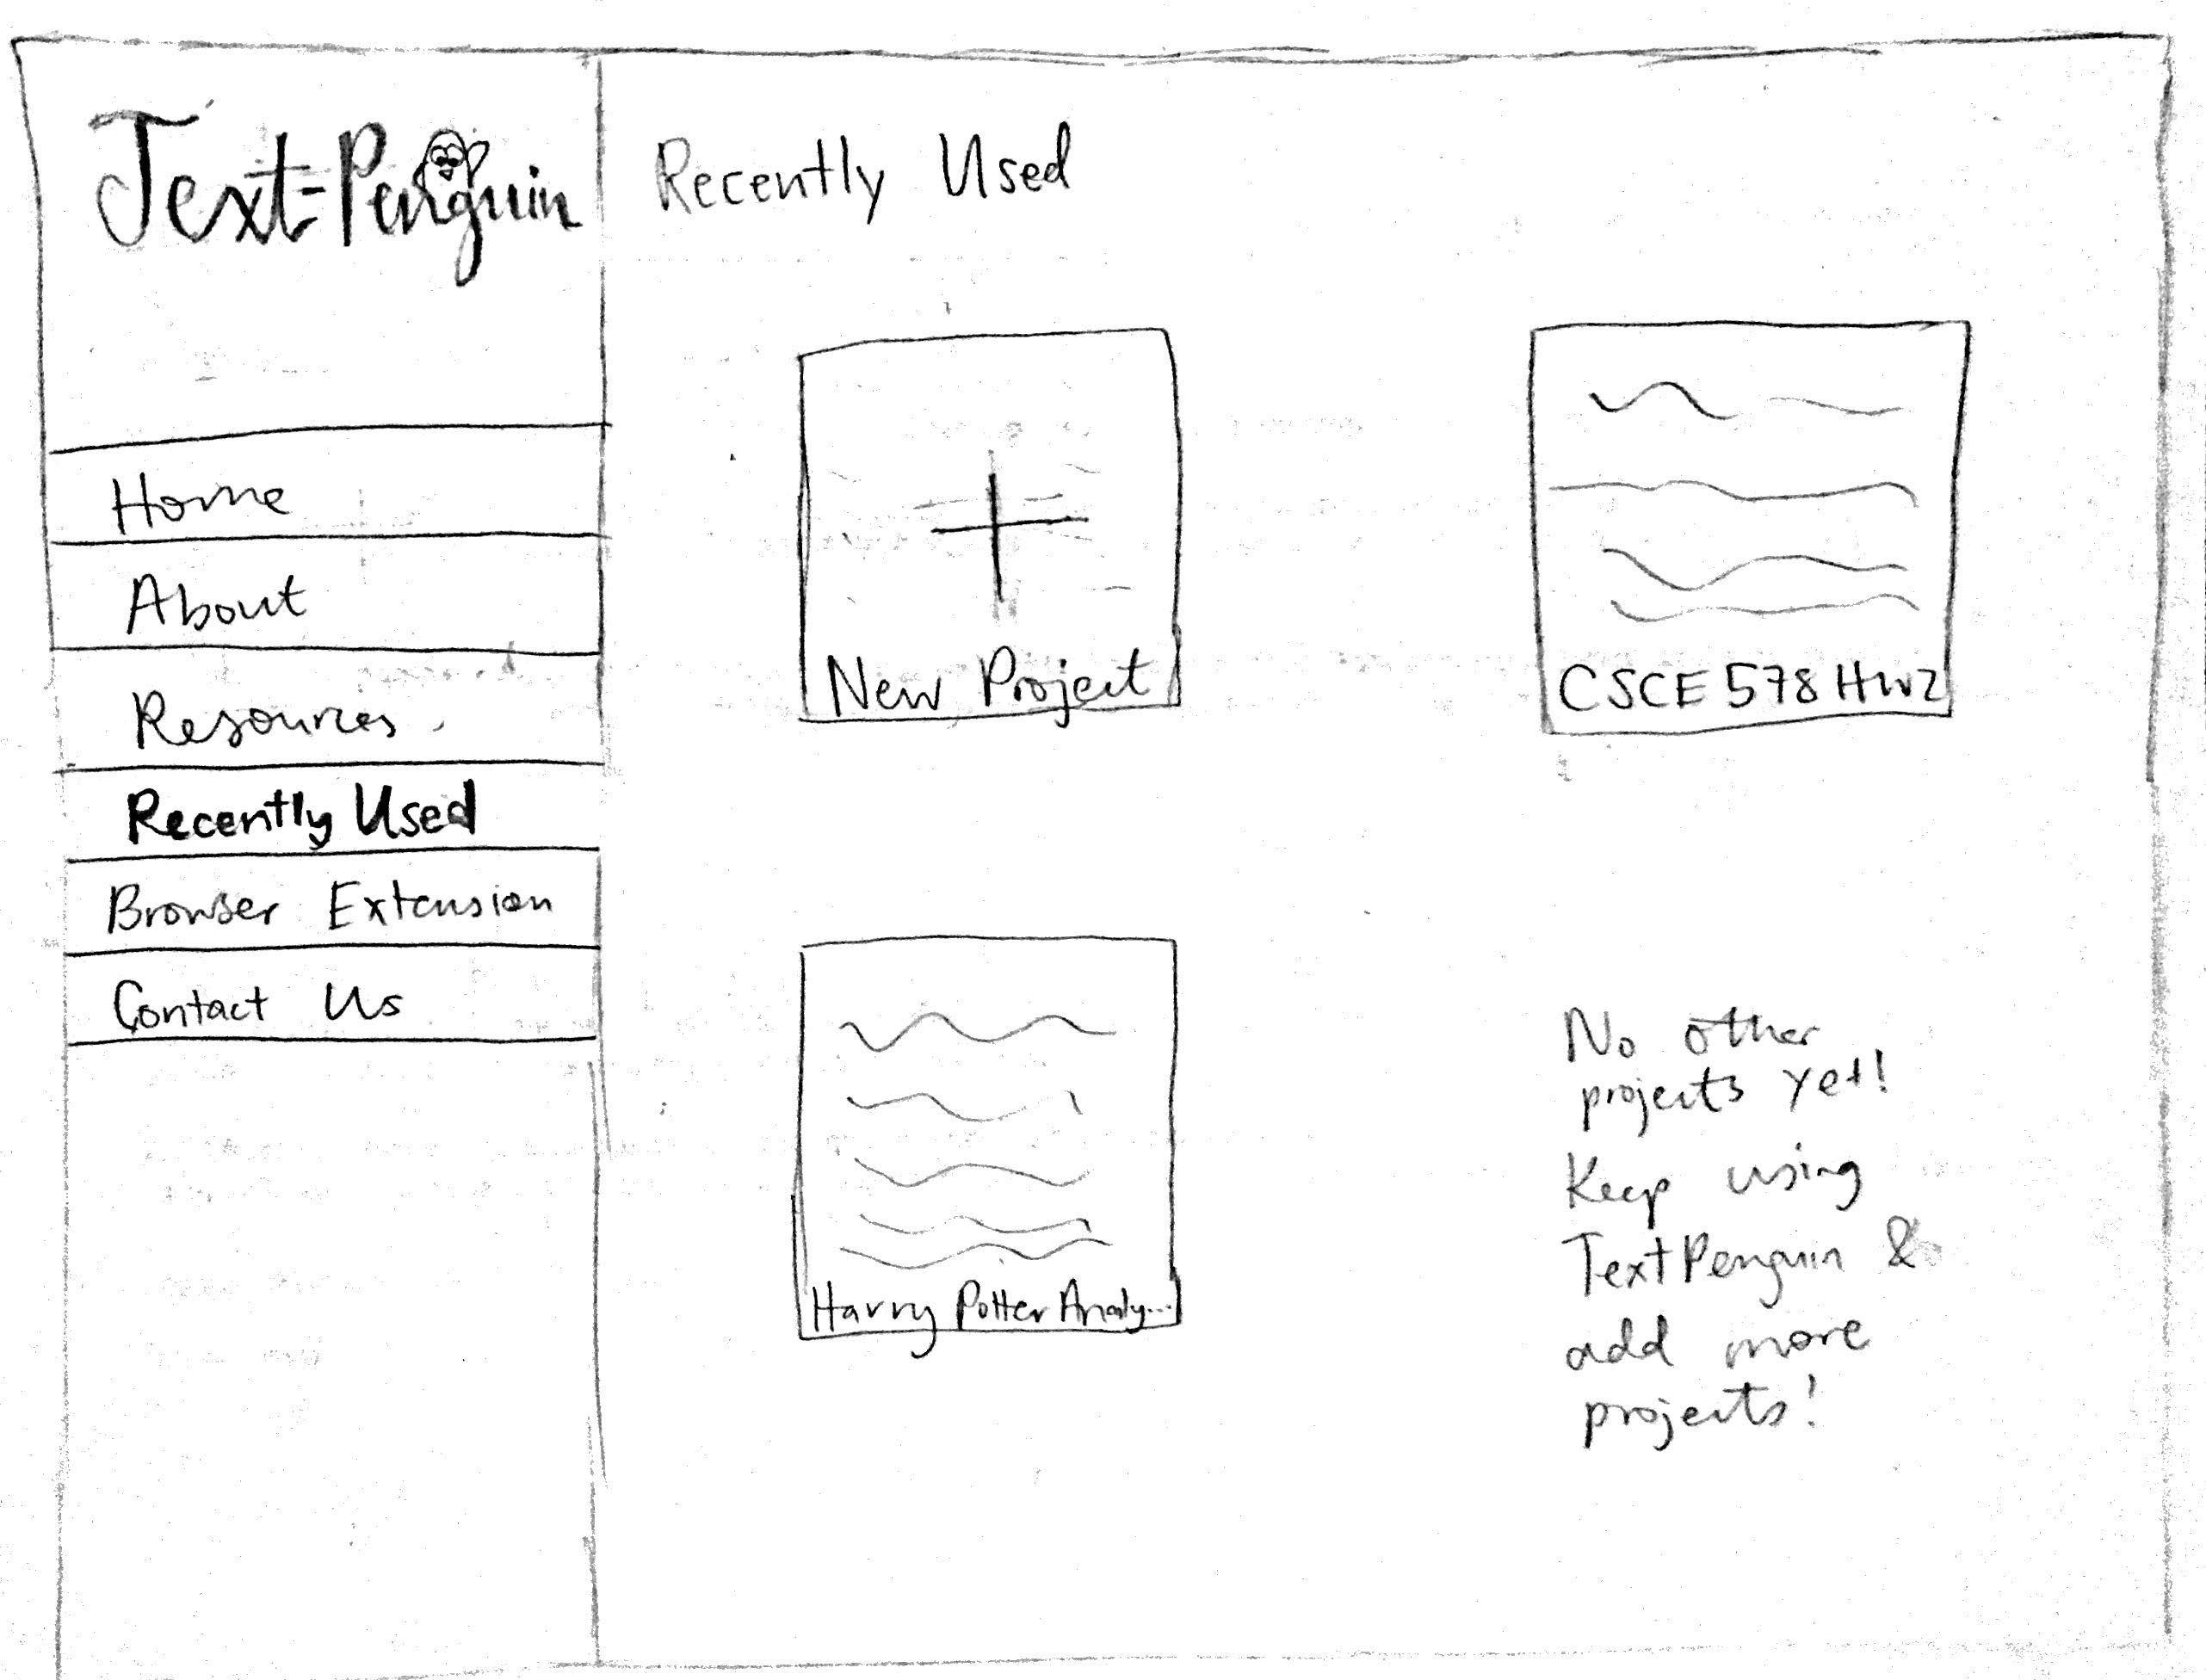 Text-Penguin
Home
About
Resources
Recently Used
Browser Extension
Contact Us
Recently Used
New Project
CSCE 578 HW2
Harry Potter Analy...
No other
projects yet!
Keep using
TextPenguin &
add more
projects!